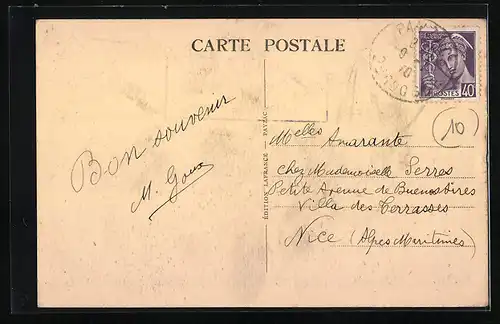 CARTE POSTALE
POSTES 40
(10)
Bon souvenir
M. Goux
EDITION LAFRANCE — PAYZAC
Melles Amarante
chez Mademoiselle Serres
Petite Avenue de Buenos Aires
Villa des Terrasses
Nice (Alpes Maritimes)